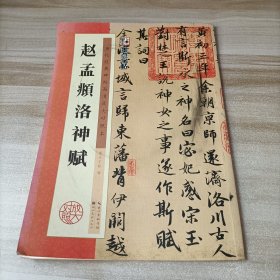 赵孟頫洛神赋
黄初三年余朝京師還濟洛川古人
有言斯水之神名曰宓妃感宋玉
對楚王說神女之事遂作斯賦
其詞曰
余從京域言歸東藩背伊闕越